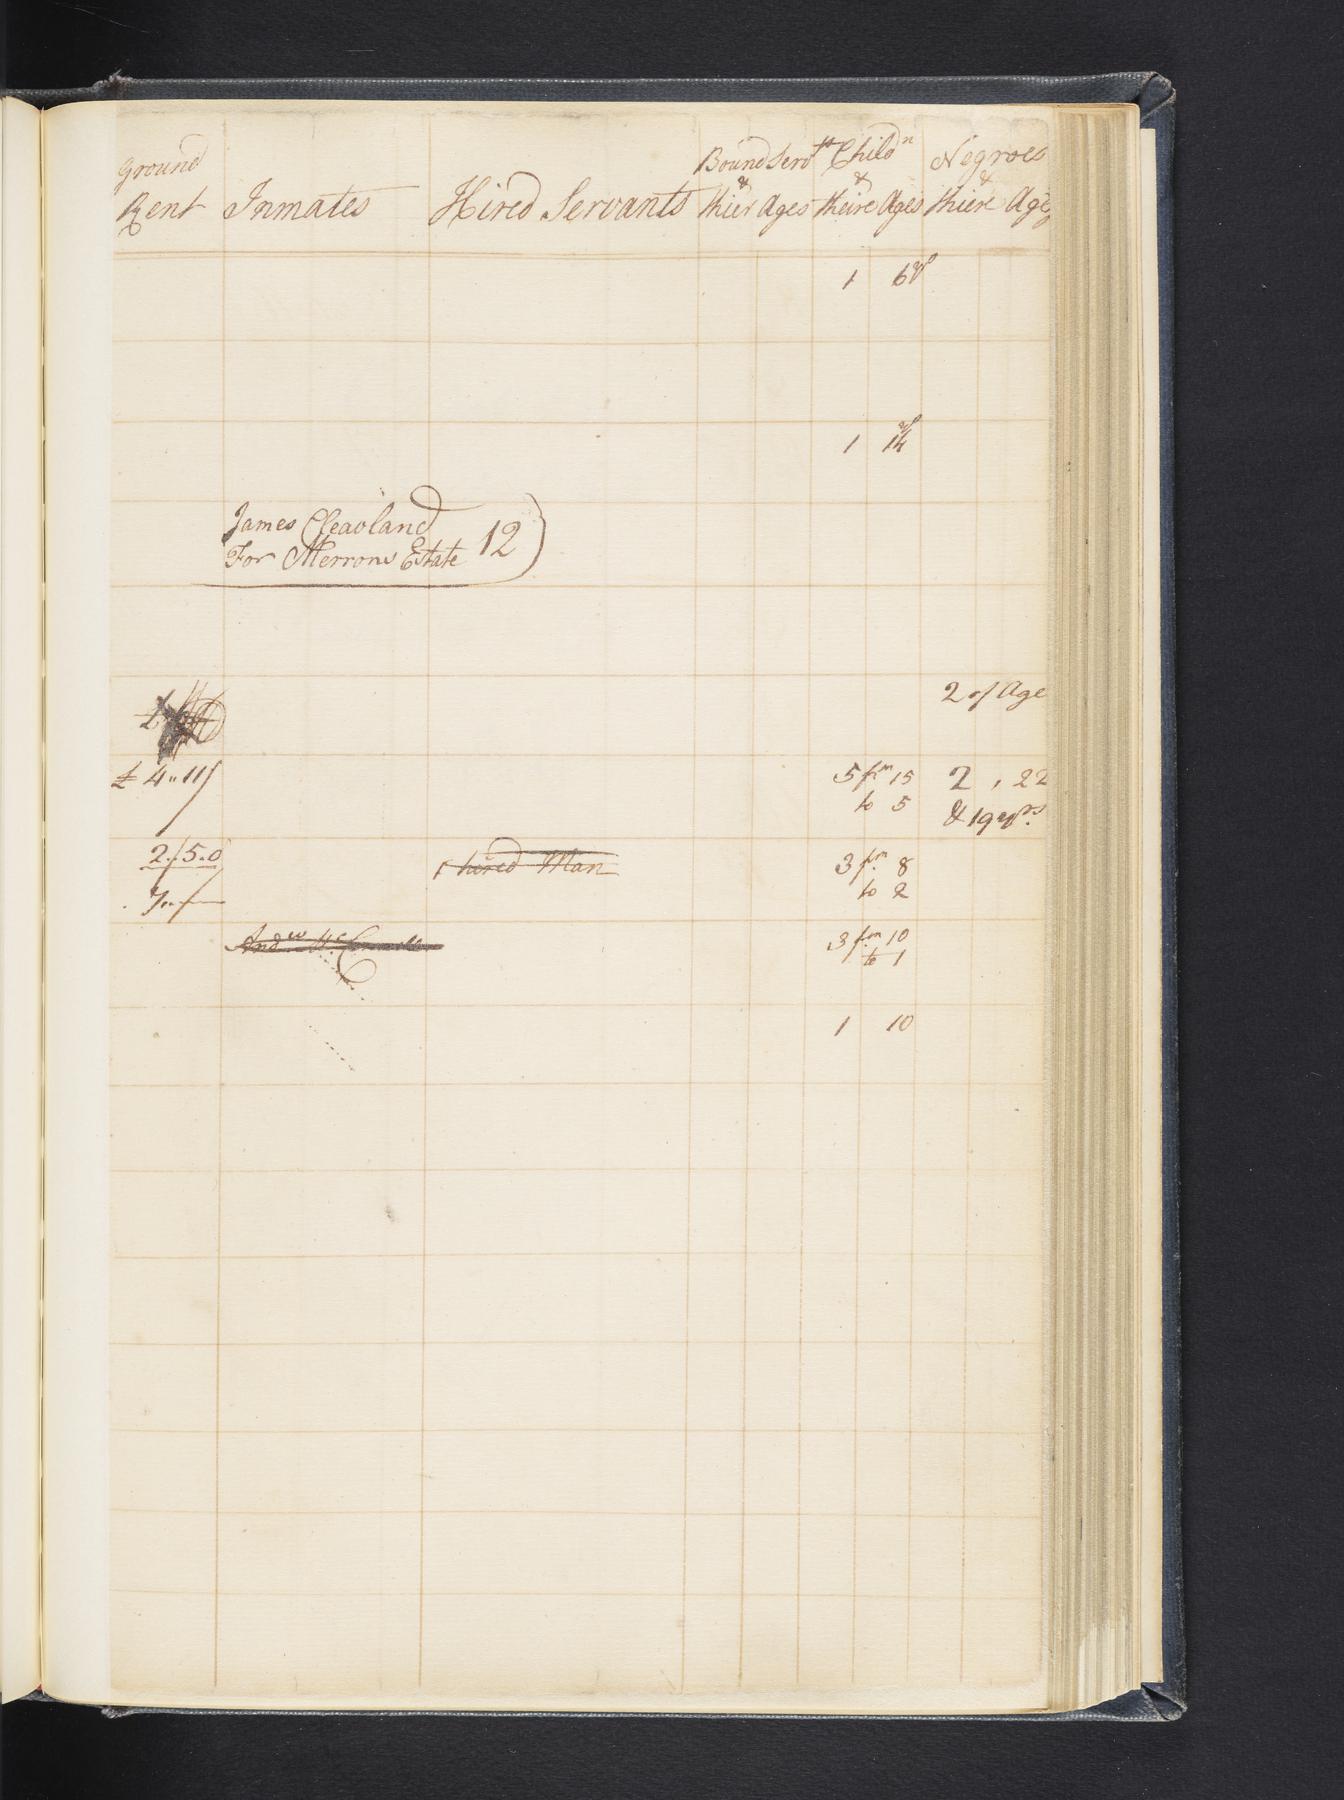 Ground Rent Inmates Hired Servants Bound Servts & thier Ages Childn & theire Ages Negroes & thiere Age
1 6 yrs
1 14 yrs
James Cleavland
For Merrons Estate 12
2 of Age
£
£ 4"11/ 5 fm 15 2, 22
to 5 & 19 yrs.
2./5.0 1 hired Man 3 fm 8
7"/— to 2
Andw Mc 3 fm 10
to 1
1 10